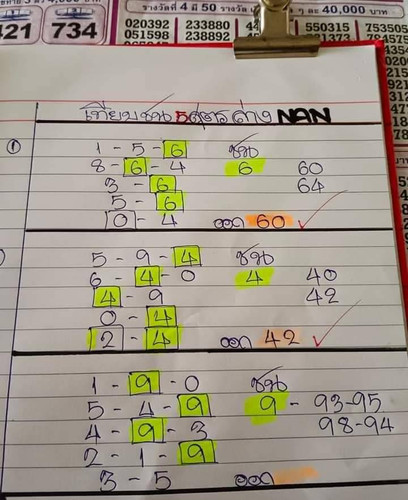 421 734
รางวัลที่ 4 มี 50 รางวัล
ๆ ละ 40,000 บาท
020392 233880 550315 753505
051598 238892
เทียบชน 5 สูตรล่าง NAN
1 - 5 - 6 ชน
8 - 6 - 4 6 60
3 - 6 64
5 - 6
0 - 4 ออก 60
5 - 9 - 4 ชน
6 - 4 - 0 4 40
4 - 9 42
0 - 4
2 - 4 ออก 42
1 - 9 - 0 ชน
5 - 4 - 9 9 - 93-95
4 - 9 - 3 98-94
2 - 1 - 9
3 - 5 ออก